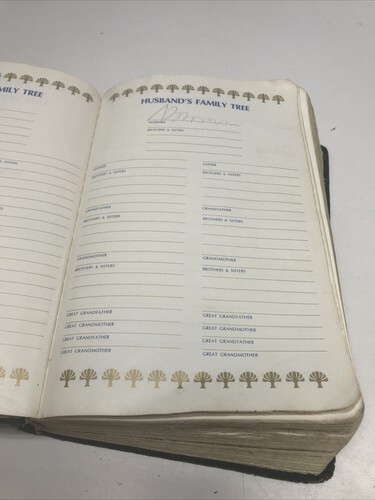 MILY TREE
HUSBAND'S FAMILY TREE
HUSBAND
BROTHERS & SISTERS
FATHER
BROTHERS & SISTERS
GRANDFATHER
BROTHERS & SISTERS
GRANDMOTHER
BROTHERS & SISTERS
GREAT GRANDFATHER
GREAT GRANDMOTHER
GREAT GRANDFATHER
GREAT GRANDMOTHER
BROTHERS & SISTERS
GRANDFATHER
BROTHERS & SISTERS
GRANDMOTHER
BROTHERS & SISTERS
GREAT GRANDFATHER
GREAT GRANDMOTHER
GREAT GRANDFATHER
GREAT GRANDMOTHER